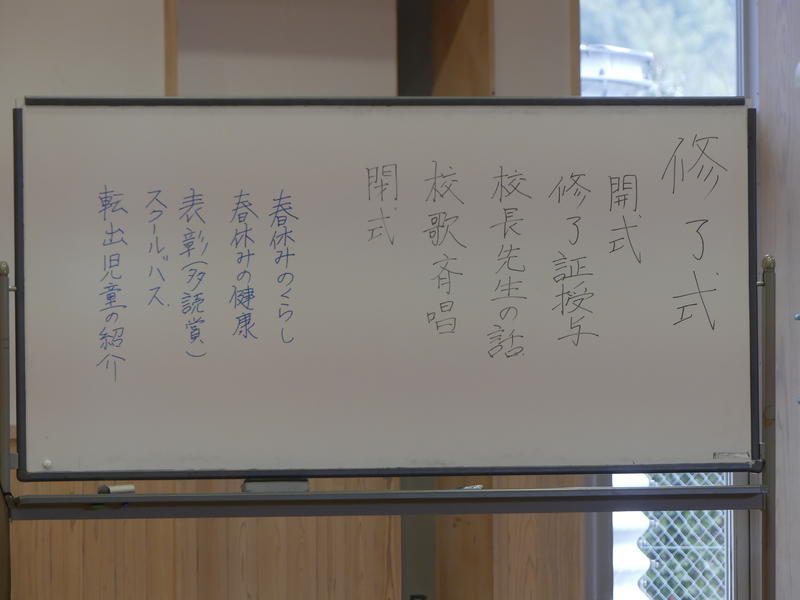 修了式
開式
修了証授与
校長先生の話
校歌斉唱
閉式
春休みのくらし
春休みの健康
表彰(多読賞)
スクールバス
転出児童の紹介